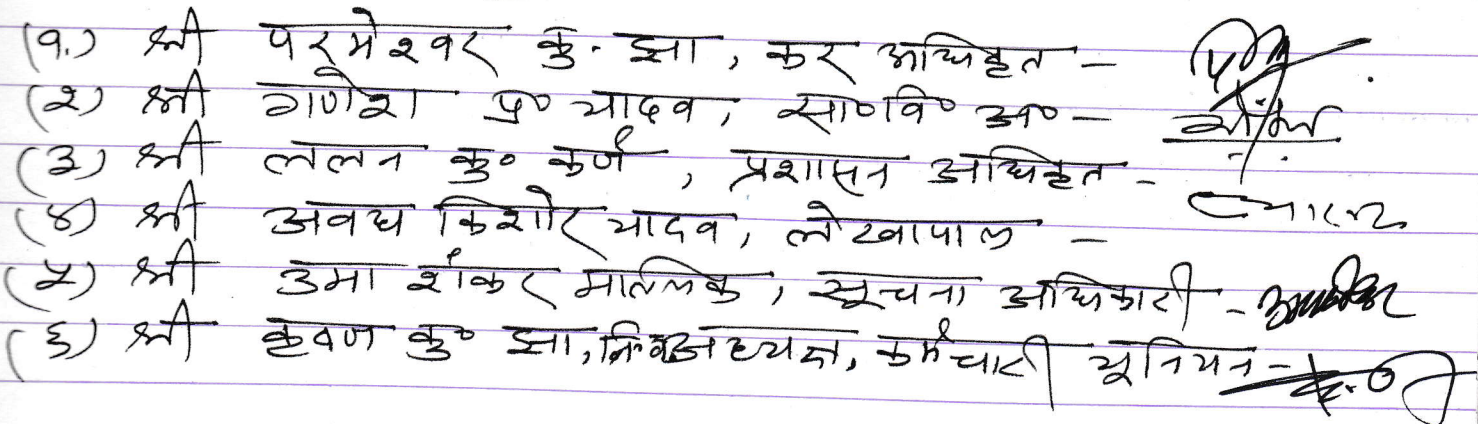 (१.) श्री परमेश्वर कु. झा, कर अधिकृत -
(२) श्री गणेश प्र० यादव, सा०वि० अ० -
(३) श्री ललन कु० कर्ण, प्रशासन अधिकृत -
(४) श्री अवध किशोर यादव, लेखापाल -
(५) श्री उमा शंकर मल्लिक, सूचना अधिकारी -
(६) श्री कृष्ण कु० झा, अध्यक्ष, कर्मचारी यूनियन -